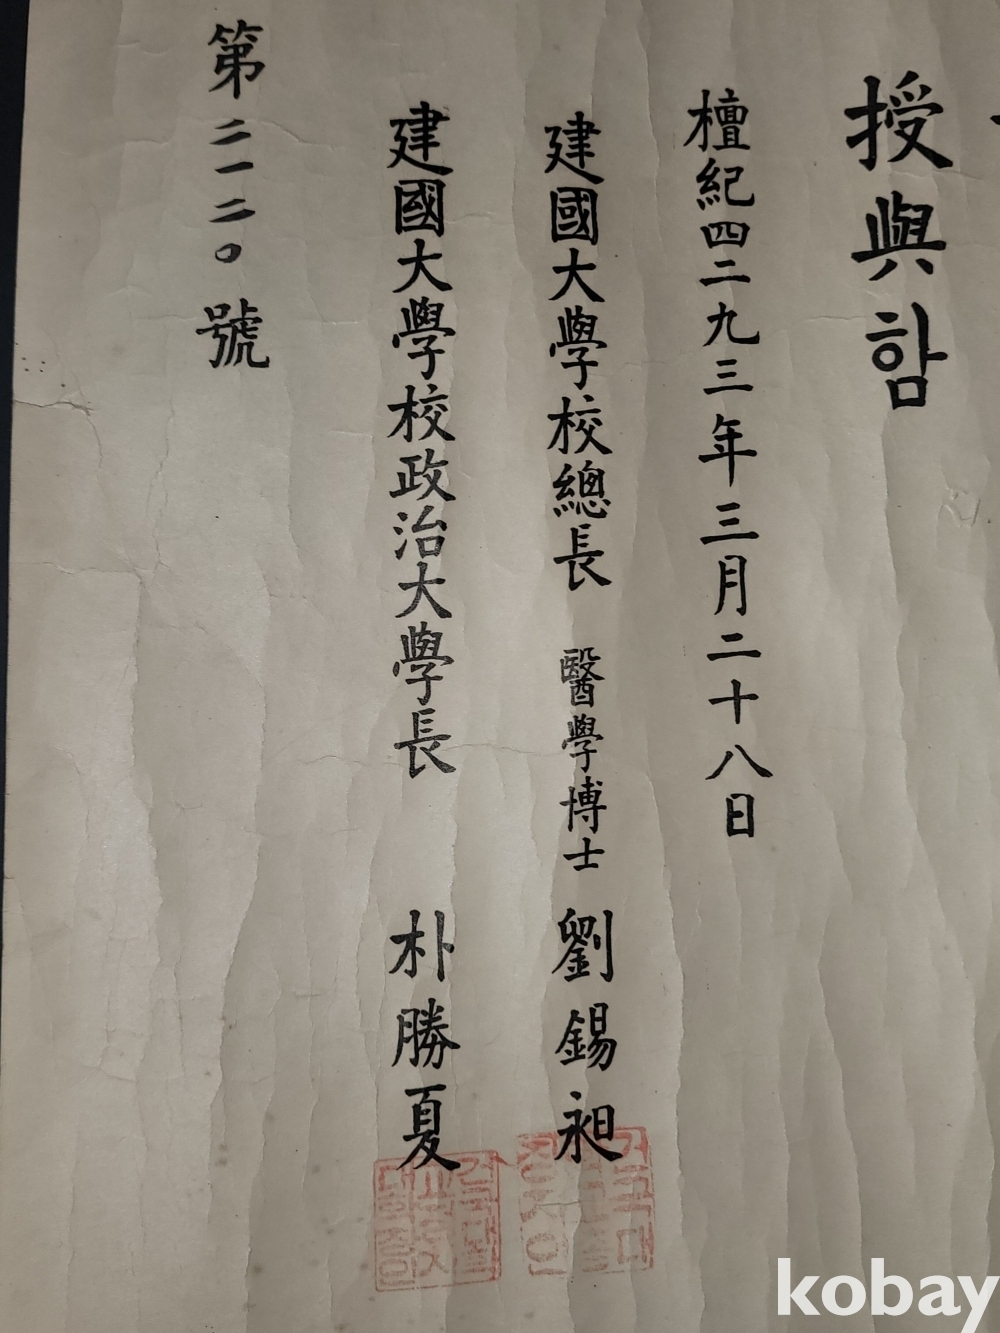 授與함
檀紀四二九三年三月二十八日
建國大學校總長 醫學博士 劉錫昶
建國大學校政治大學長 朴勝夏
第二一二〇號
kobay